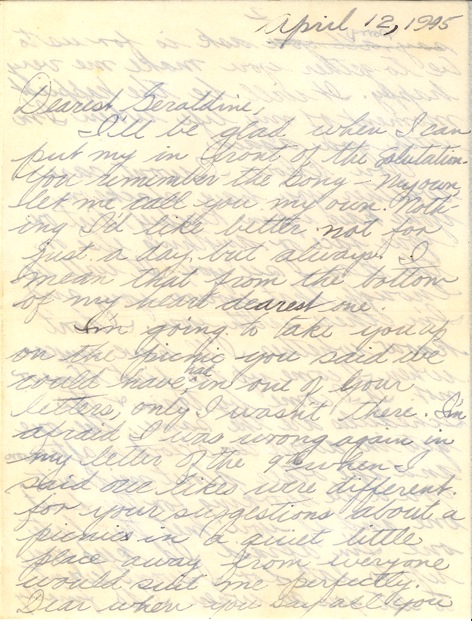 April 12, 1945
Dearest Geraldine,
I'll be glad when I can
put my in front of the salutation.
You remember the song - My own,
let me call you my own. Noth-
ing I'd like better not for
just a day, but always. I
mean that from the bottom
of my heart dearest one.
I'm going to take you up
on the picnic you said we
could have had in one of your
letters, only I wasn't there. I'm
afraid I was wrong again in
my letter of the 9th when I
said our likes were different.
for your suggestions about a
picnic in a quiet little
place away from everyone
would suit me perfectly.
Dear when you say all you